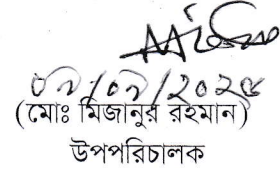 ০৯/০৯/২০২৫
(মোঃ মিজানুর রহমান)
উপপরিচালক